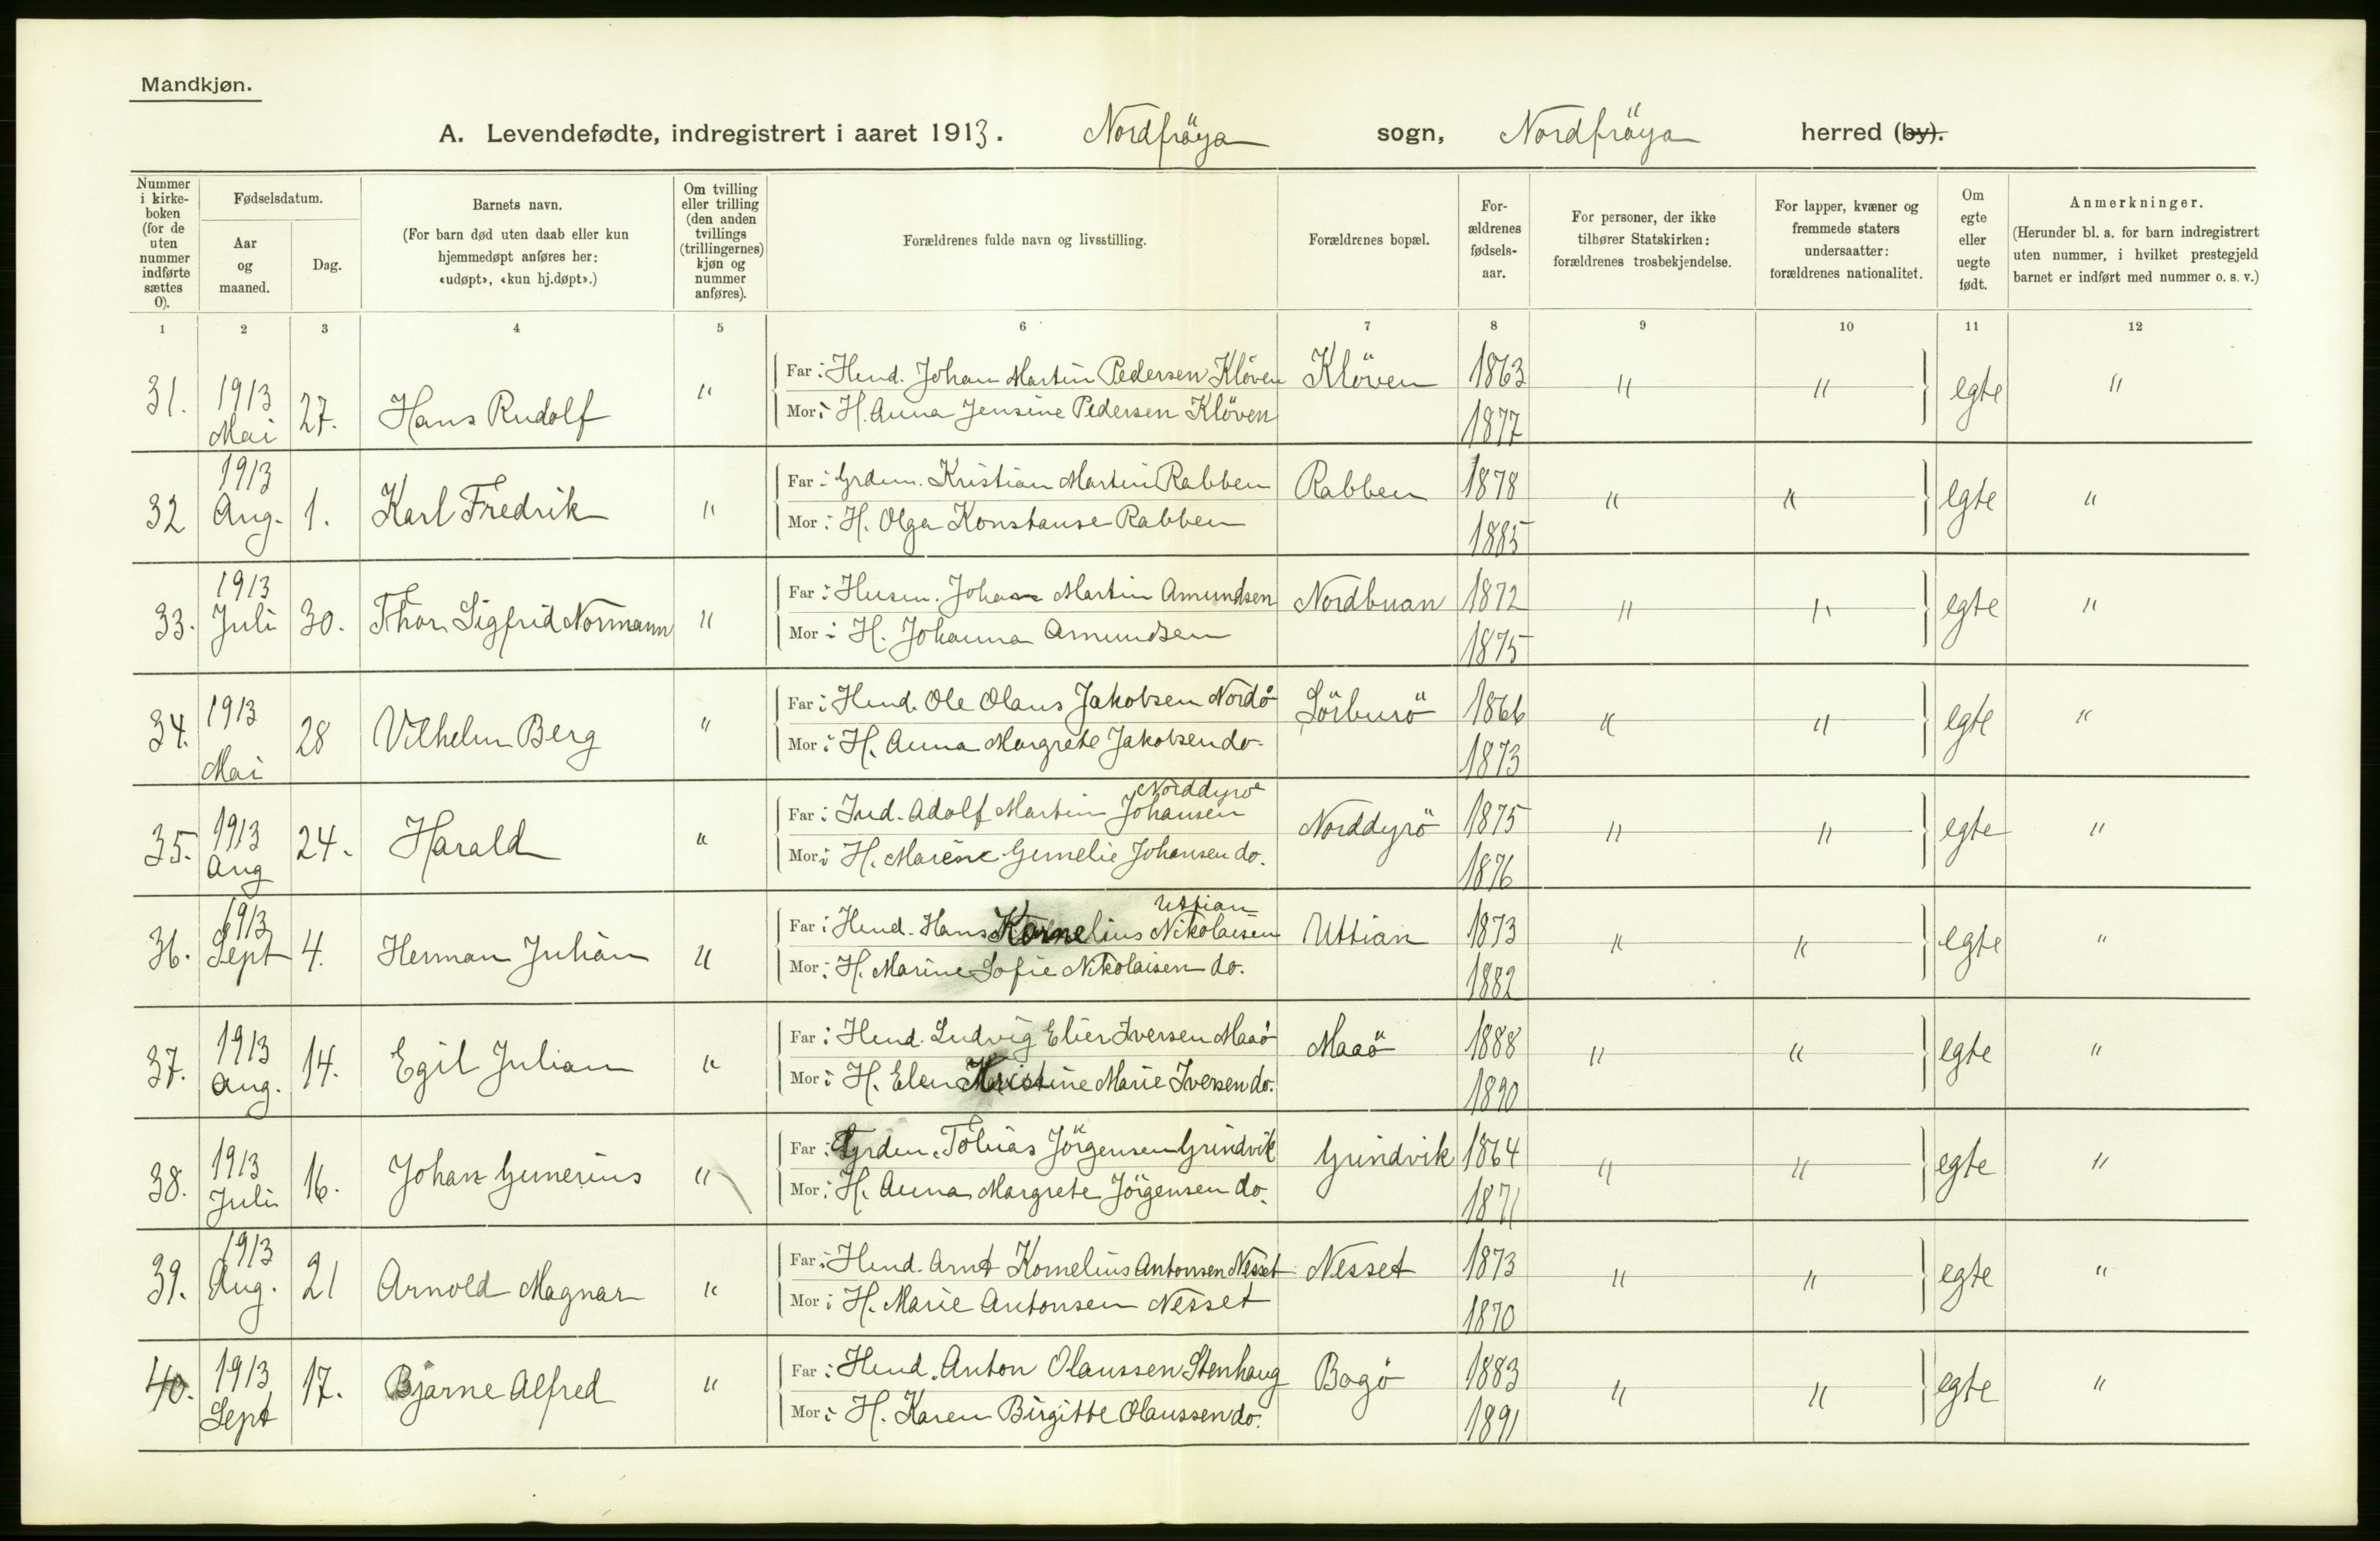 Mandkjøn.
A. Levendefødte, indregistrert i aaret 1913. Nordfröya sogn, Nordfröya herred (by).
Nummer i kirke-boken (for de uten nummer indførte sættes 0).
Fødselsdatum.
Aar og maaned.
Dag.
Barnets navn.
(For barn død uten daab eller kun hjemmedøpt anføres her: «udøpt», «kun hj.døpt».)
Om tvilling eller trilling (den anden tvillings (trillingernes) kjøn og nummer anføres).
Forældrenes fulde navn og livsstilling.
Forældrenes bopæl.
For-ældrenes fødsels-aar.
For personer, der ikke tilhører Statskirken: forældrenes trosbekjendelse.
For lapper, kvæner og fremmede staters undersaatter: forældrenes nationalitet.
Om egte eller uegte født.
Anmerkninger.
(Herunder bl. a. for barn indregistrert uten nummer, i hvilket prestegjeld barnet er indført med nummer o. s. v.)
1 2 3 4 5 6 7 8 9 10 11 12
31. 1913 Mai 27. Hans Rudolf " Far: Hmd. Johan Martin Pedersen Klöven Klöven 1863 " " egte "
Mor: H. Anna Jensine Pedersen Klöven 1877
32 1913 Aug. 1. Karl Fredrik " Far: Grdm. Kristian Martin Rabben Rabben 1878 " " egte "
Mor: H. Olga Konstanse Rabben 1885
33. 1913 Juli 30. Thor Sigfrid Normann " Far: Husm. Johan Martin Amundsen Nordbuan 1872 " " egte "
Mor: H. Johanna Amundsen 1875
34. 1913 Mai 28 Vilhelm Berg " Far: Hmd. Ole Olaus Jakobsen Nordö Sörburö 1866 " " egte "
Mor: H. Anna Margrete Jakobsen do. 1873
35. 1913 Aug 24. Harald " Far: Ind. Adolf Martin Johansen Norddyrö Norddyrö 1875 " " egte "
Mor: H. Marene Gemelie Johansen do. 1876
36. 1913 Sept 4. Herman Julian " Far: Hmd. Hans Kornelius Nikolaisen Uttian Uttian 1873 " " egte "
Mor: H. Marine Sofie Nikolaisen do. 1882
37. 1913 Aug. 14. Egil Julian " Far: Hmd. Ludvig Elier Iversen Maaö Maaö 1888 " " egte "
Mor: H. Elen Kristine Marie Iversen do. 1890
38. 1913 Juli 16. Johan Gunerius " Far: Grdm. Tobias Jörgensen Grindvik Grindvik 1864 " " egte "
Mor: H. Anna Margrete Jörgensen do. 1871
39. 1913 Aug. 21 Arnold Magnar " Far: Hmd. Arnt Kornelius Antonsen Nesset Nesset 1873 " " egte "
Mor: H. Marie Antonsen Nesset 1870
40. 1913 Sept 17. Bjarne Alfred " Far: Hmd. Anton Olaussen Stenhaug Bogö 1883 " " egte "
Mor: H. Karen Birgitte Olaussen do. 1891